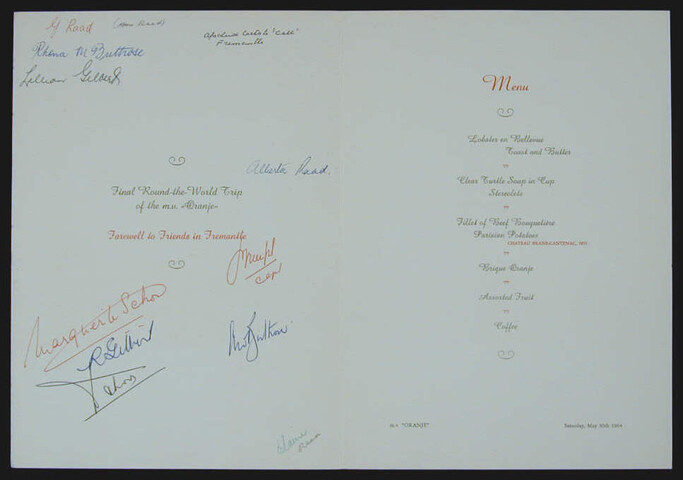 G Raad
Rhona M Buttrose
Lillian Gilbert
Fremantle
Alberta Raad.
Final Round-the-World Trip
of the m.v. «Oranje»
Farewell to Friends in Fremantle
Marguerite Schor
R Gilbert
Claire
Menu
Lobster en Bellevue
Toast and Butter
Clear Turtle Soup in Cup
Fillet of Beef Bouquetière
Parisian Potatoes
Brique Oranje
Assorted Fruit
Coffee
m.v "ORANJE"
Saturday, May 30th 1964